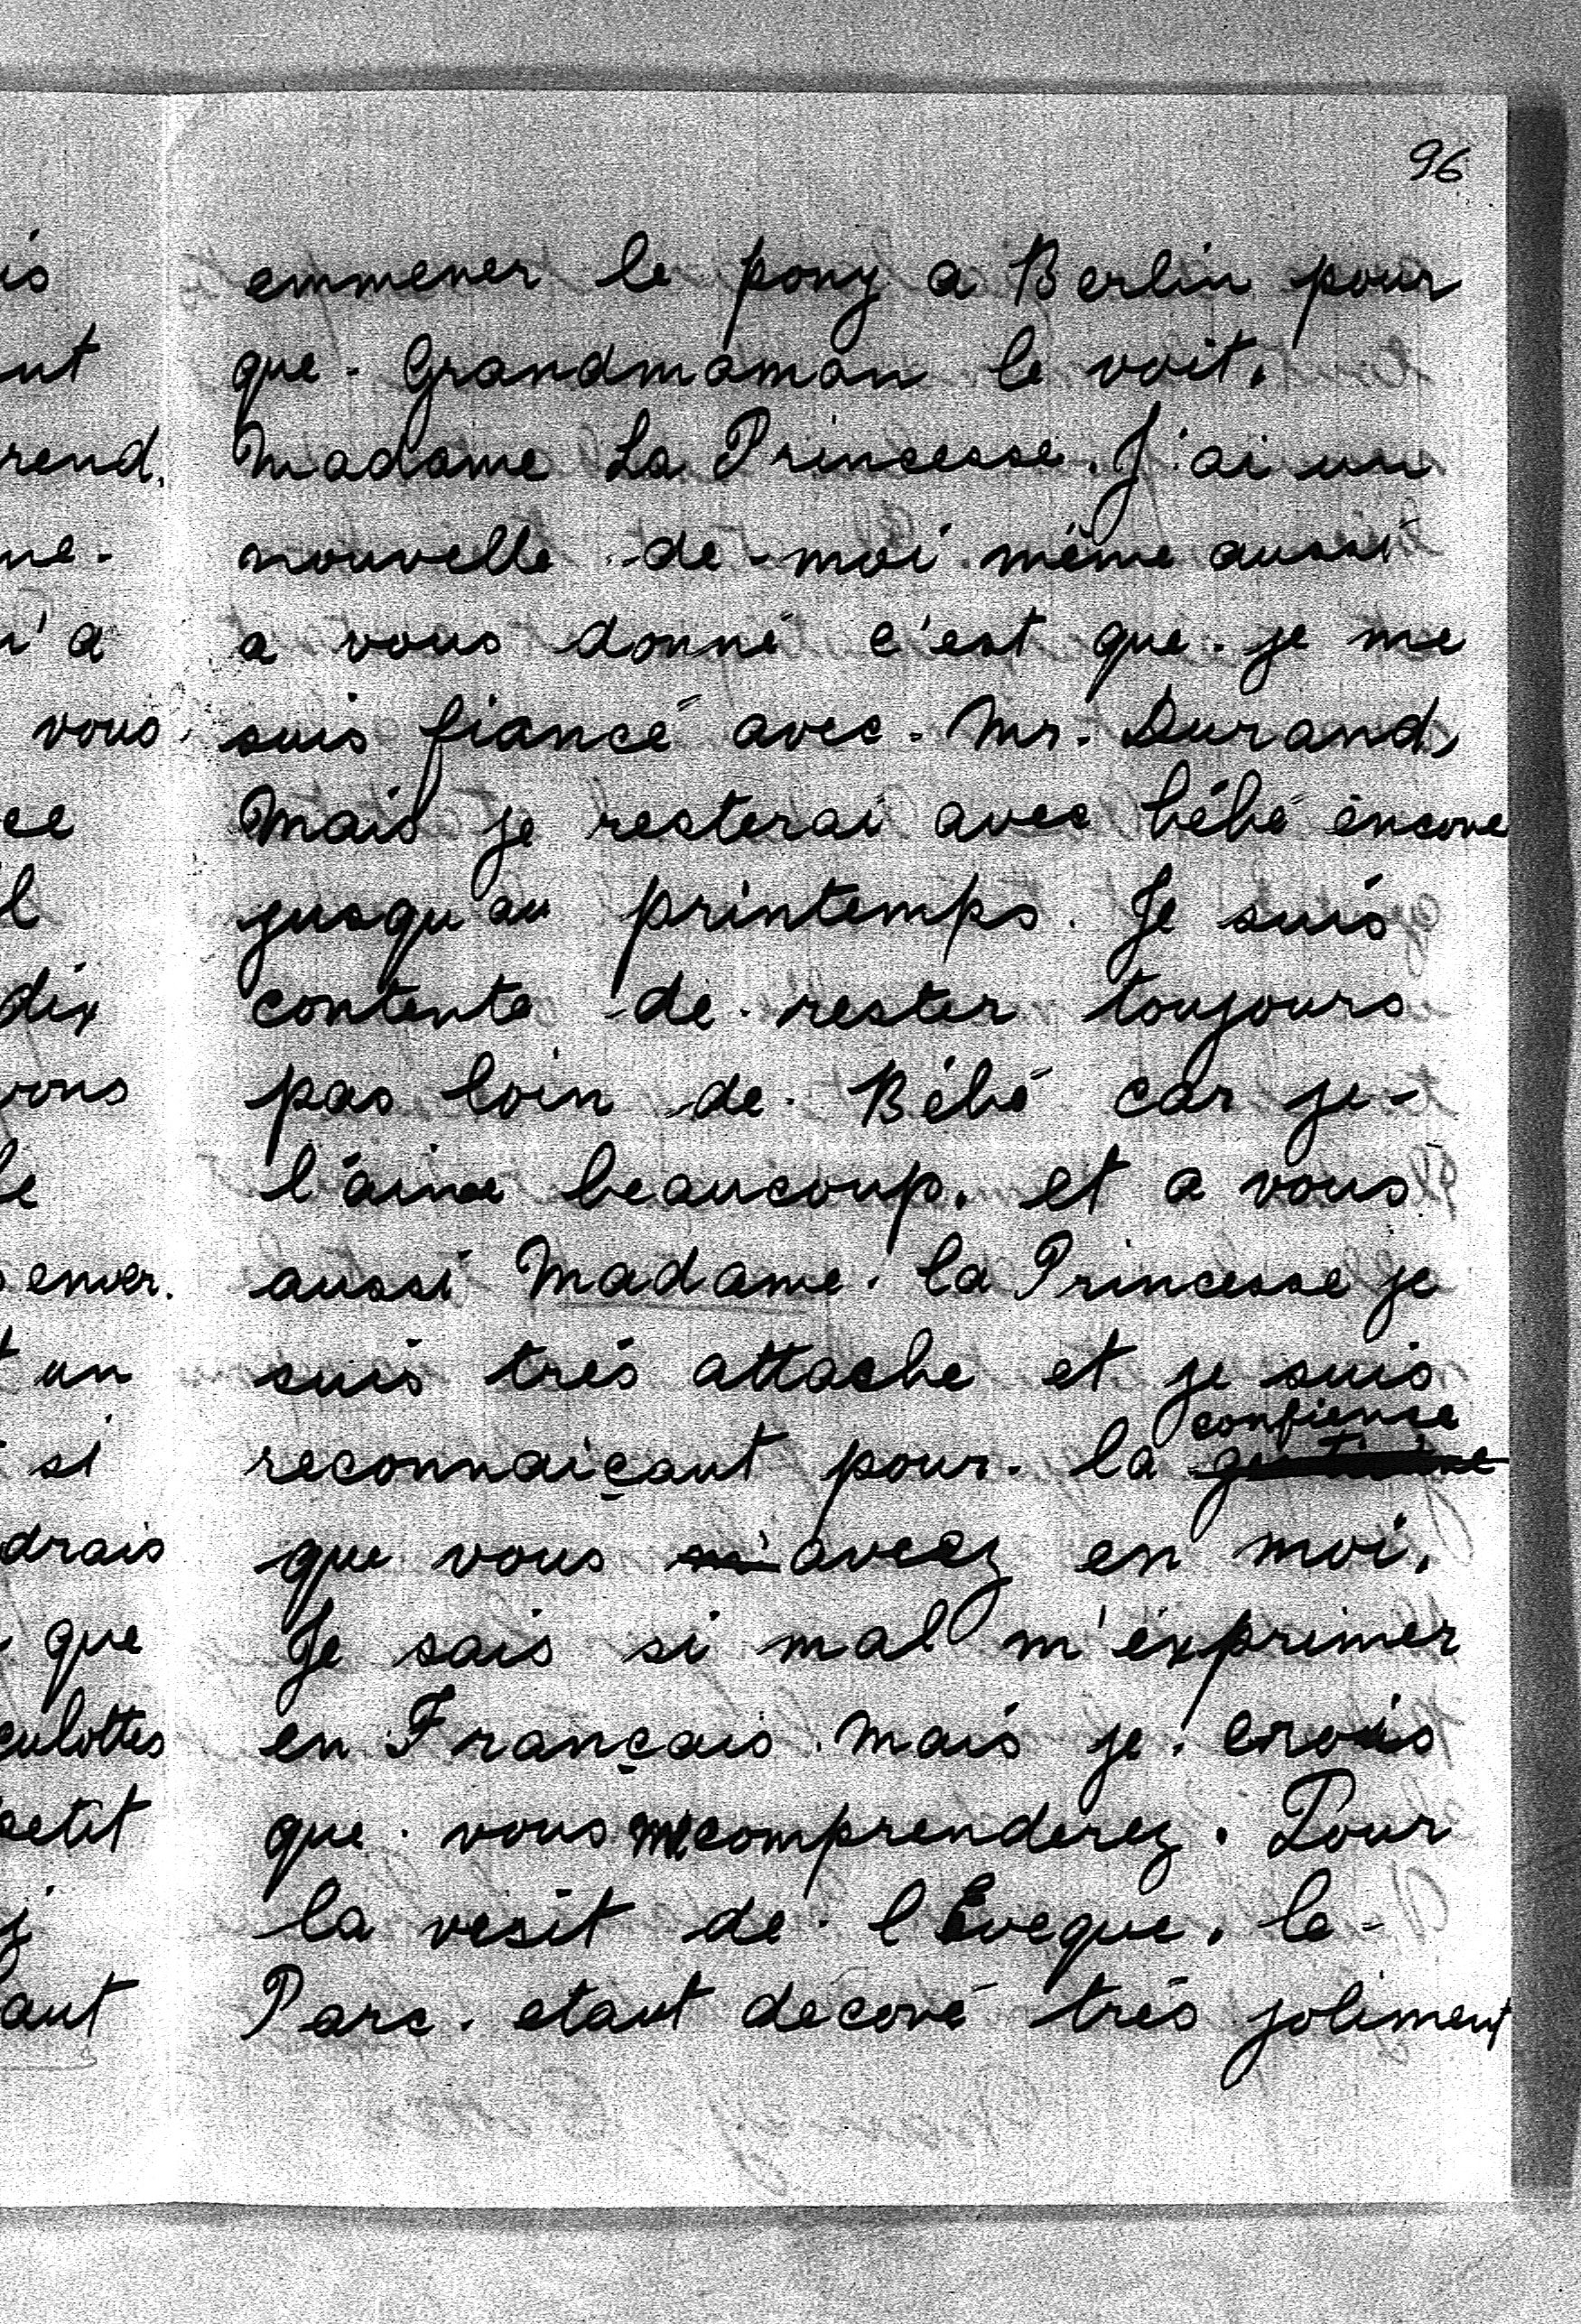 96
is
ut
rend.
me-
n'a
vous
ce
l
dix
vons
le
enver.
un
si
drais
que
culottes
petit
j
aut
emmener le pony a Berlin pour
que Grandmaman le voit.
Madame La Princesse. J'ai un
nouvelle de moi même aussi
a vous donné c'est que je me
suis fiancé avec Mr. Durand,
Mais je resterai avec bébé encore
jusqu'au printemps. Je suis
contente de rester toujours
pas loin de Bébé car je
l'aime beaucoup. et a vous
aussi Madame la Princesse je
suis très attache et je suis
confience
reconnaiçant pour la
que vous avez en moi.
Je sais si mal m'exprimer
en Français mais je crois
que vous me comprenderez. Pour
la vesit de l'Eveque. le
Parc. etaut decoré très joliment